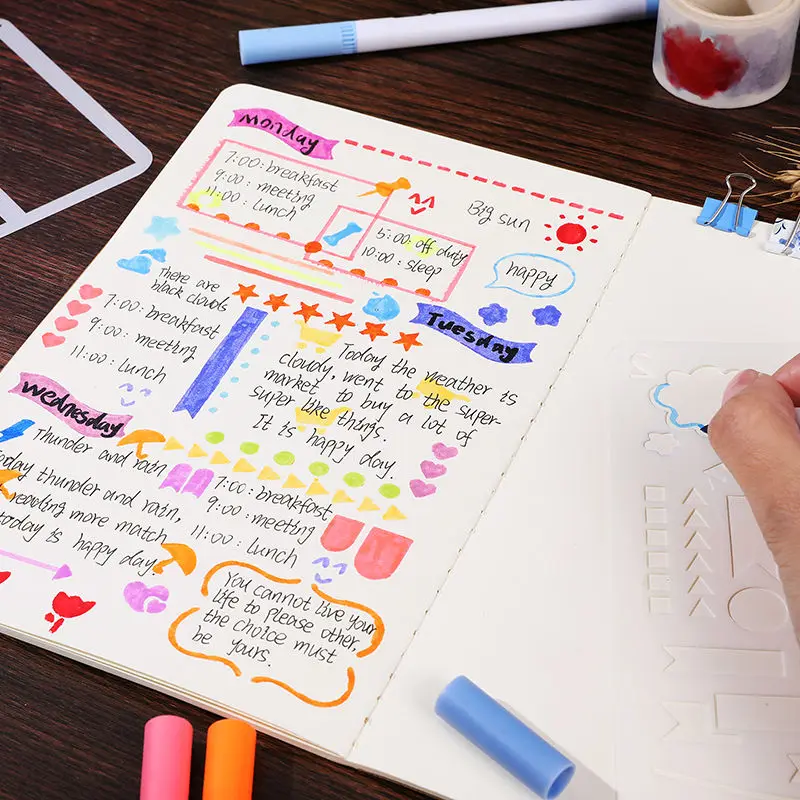 Monday
7:00: breakfast
9:00: meeting
11:00: Lunch
Big sun
5:00: off duty
10:00: sleep
happy
There are
black clouds
7:00: breakfast
9:00: meeting
11:00: Lunch
Tuesday
Today the weather is
cloudy, went to the super-
market to buy a lot of
super like things.
It is happy day.
Wednesday
Thunder and rain
Today thunder and rain,
reading more match
today is happy day.
7:00: breakfast
9:00: meeting
11:00: Lunch
You cannot live your
life to please other,
the choice must
be yours.